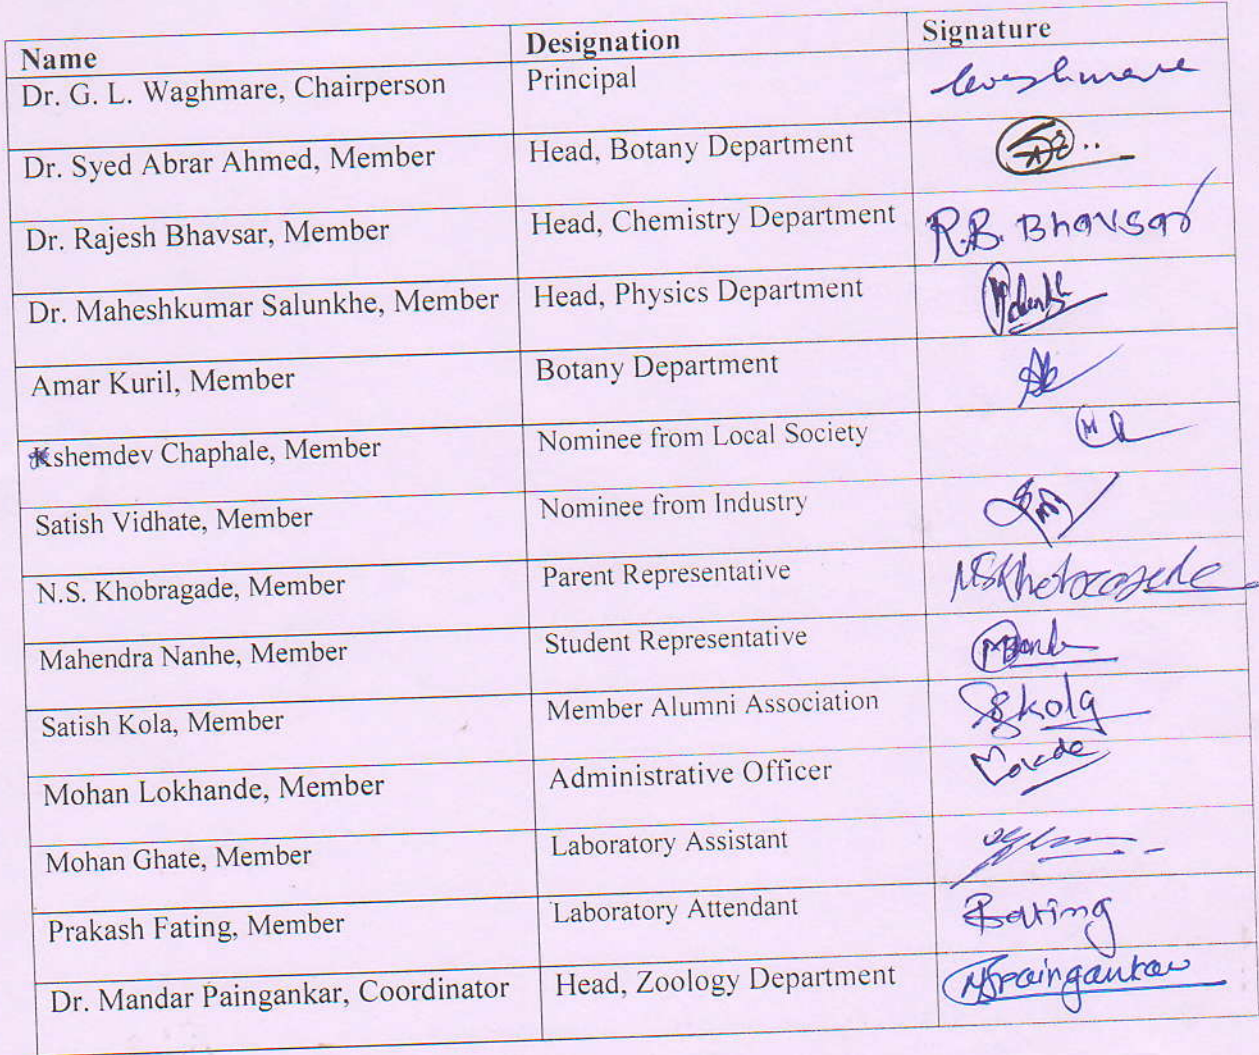 Name Designation Signature
Dr. G. L. Waghmare, Chairperson Principal Waghmare
Dr. Syed Abrar Ahmed, Member Head, Botany Department
Dr. Rajesh Bhavsar, Member Head, Chemistry Department R.B. Bhavsar
Dr. Maheshkumar Salunkhe, Member Head, Physics Department
Amar Kuril, Member Botany Department
Kshemdev Chaphale, Member Nominee from Local Society
Satish Vidhate, Member Nominee from Industry
N.S. Khobragade, Member Parent Representative NSKhobragade
Mahendra Nanhe, Member Student Representative
Satish Kola, Member Member Alumni Association SKola
Mohan Lokhande, Member Administrative Officer
Mohan Ghate, Member Laboratory Assistant
Prakash Fating, Member Laboratory Attendant Fating
Dr. Mandar Paingankar, Coordinator Head, Zoology Department MSPaingankar